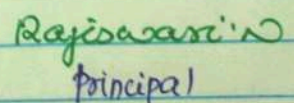 Rajiswari.N
Principal